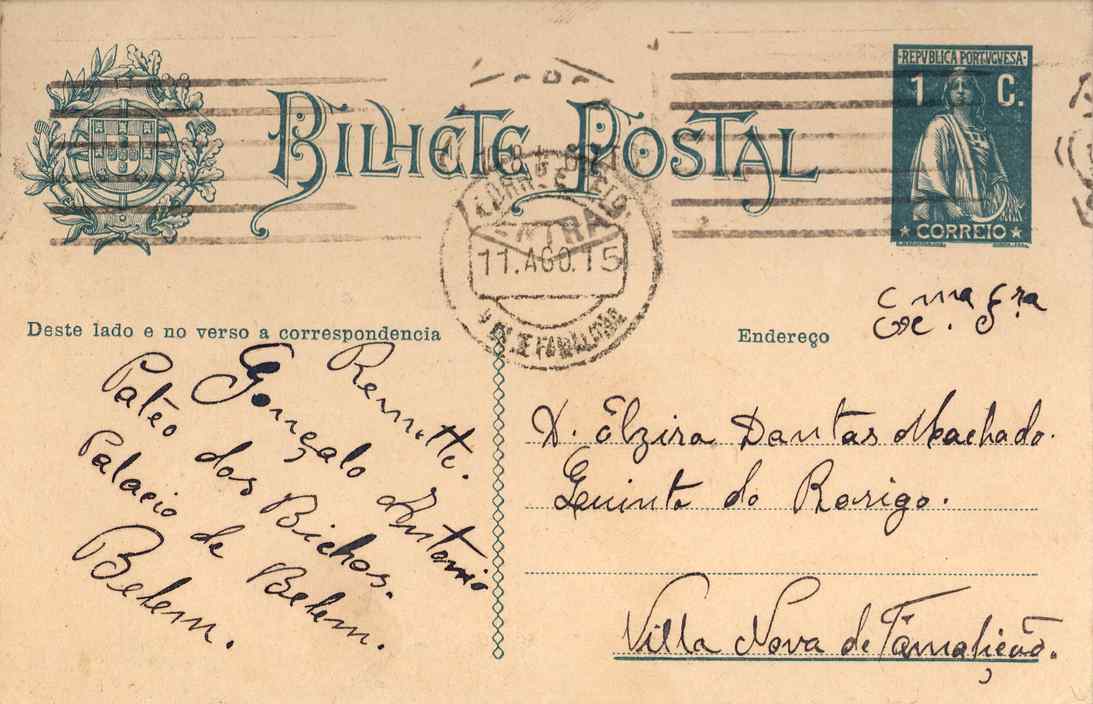 REPVBLICA PORTUGUESA
1 C.
BILHETE POSTAL
CORREIO
11.AGO.15
Exma Sra
Deste lado e no verso a correspondencia
Endereço
Remtte.
Gonçalo Antonio
Pateo dos Bichos.
Palacio de Belem.
Belem.
D. Elzira Dantas Machado.
Quinta do Rorigo.
Villa Nova de Famalicão.